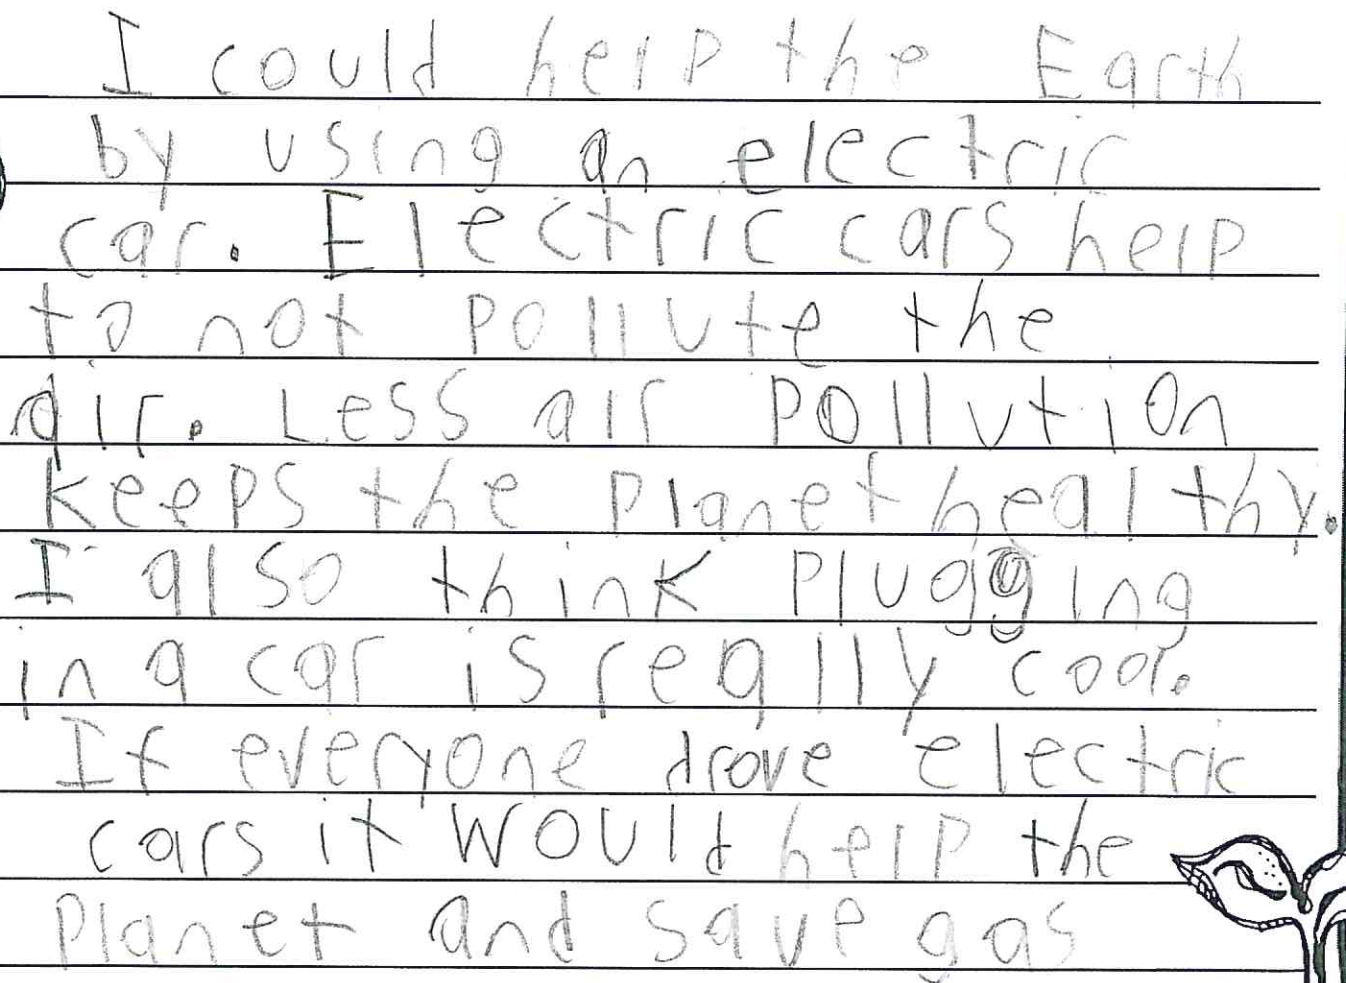 I could help the Earth
by using an electric
car. Electric cars help
to not pollute the
air. Less air pollution
keeps the planet healthy.
I also think plugging
in a car is really cool.
If everyone drove electric
cars it would help the
planet and save gas